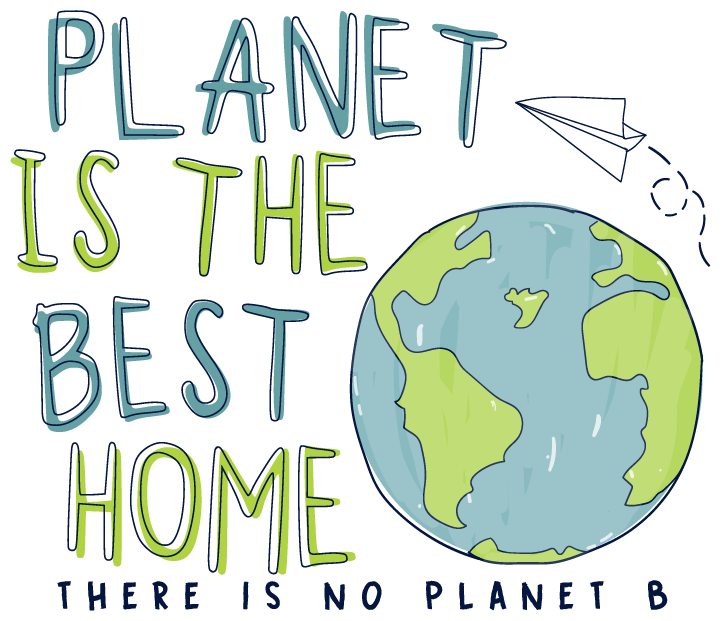 PLANET
IS THE
BEST
HOME
THERE IS NO PLANET B